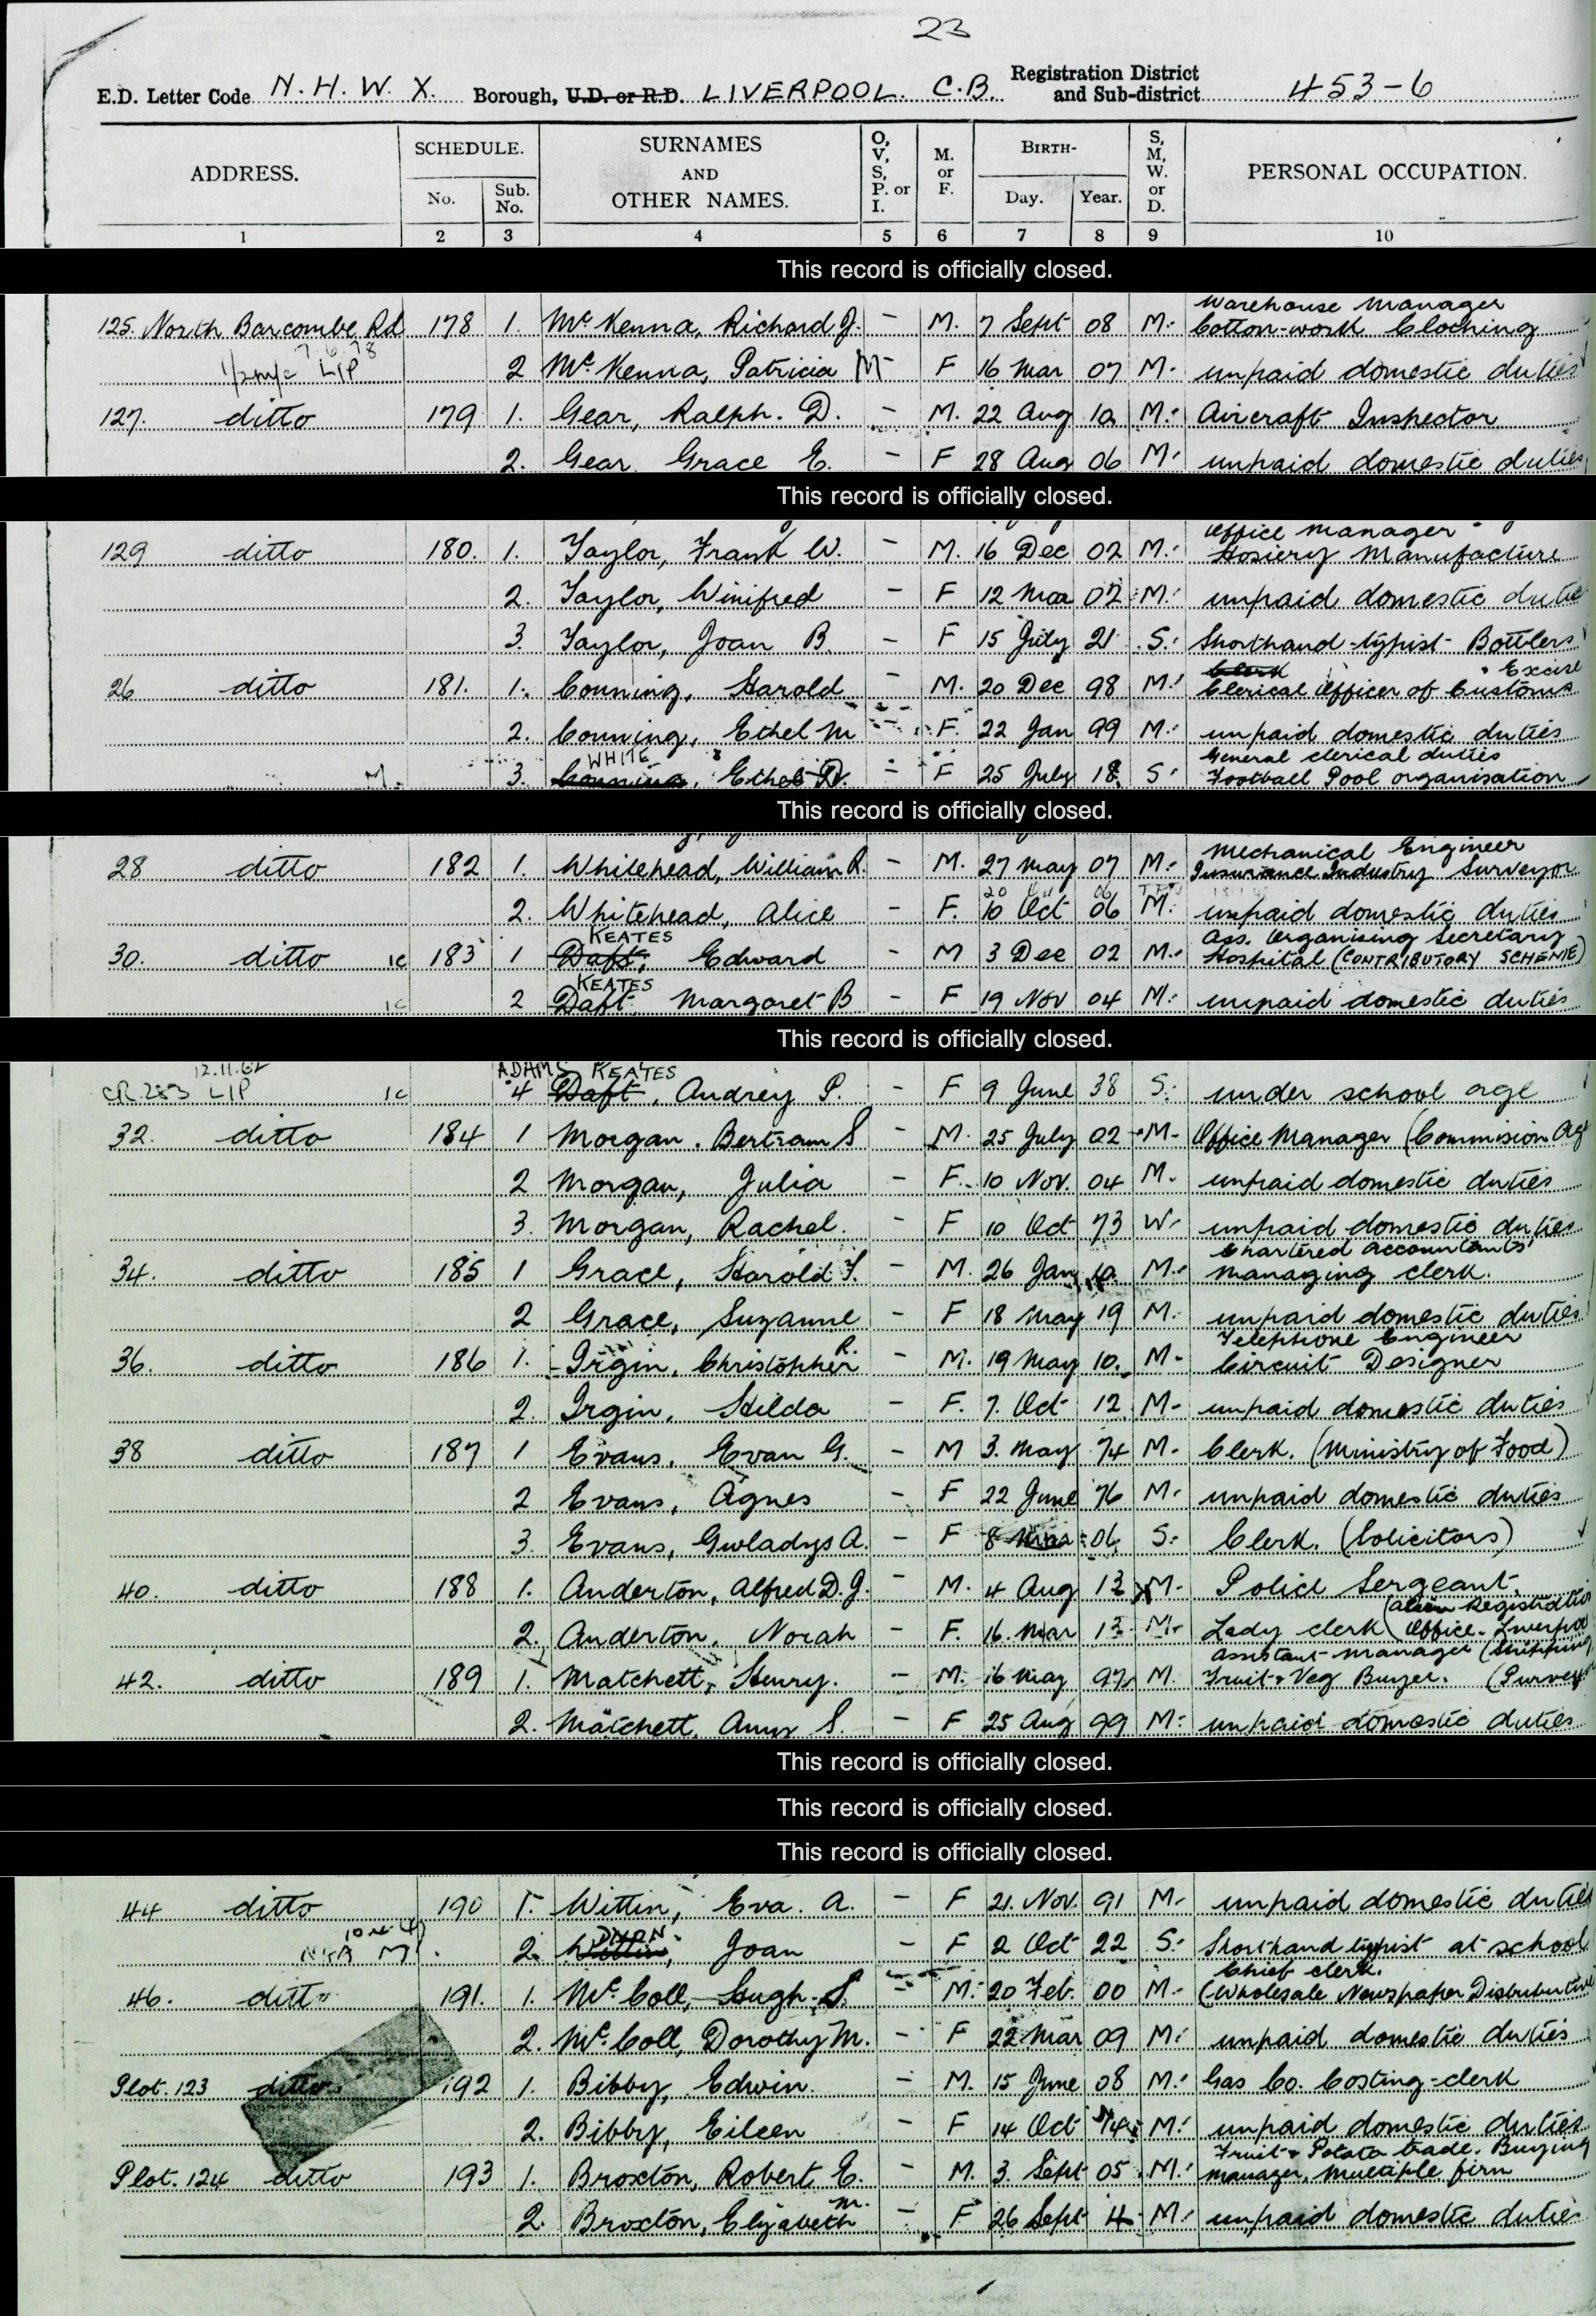 23
E.D. Letter Code N. H. W. X. Borough, U.D. or R.D. LIVERPOOL. C.B. Registration District and Sub-district 453-6
ADDRESS. SCHEDULE. No. Sub. No. SURNAMES AND OTHER NAMES. O, V, S, P. or I. M. or F. BIRTH- Day. Year. S, M, W. or D. PERSONAL OCCUPATION.
1 2 3 4 5 6 7 8 9 10
This record is officially closed.
Warehouse Manager
125. North Barcombe Rd 178 1. McKenna, Richard J. - M. 7 Sept 08 M. Cotton-work Clothing
LIP 2 McKenna, Patricia M - F 16 Mar 07 M. unpaid domestic duties
127. ditto 179 1. Gear, Ralph. D. - M. 22 Aug 10 M. Aircraft Inspector
2. Gear Grace E. - F 28 Aug 06 M. unpaid domestic duties
This record is officially closed.
Office Manager
129 ditto 180. 1. Taylor, Frank W. - M. 16 Dec 02 M. Hosiery Manufacture
2. Taylor, Winifred - F 12 Mar 02 M. unpaid domestic duties
3. Taylor, Joan B. - F 15 July 21 S. Shorthand-typist Bottlers
Clerk & Excise
26 ditto 181. 1. Conning, Harold - M. 20 Dec 98 M. Clerical Officer of Customs
2. Conning, Ethel M - F. 22 Jan 99 M. unpaid domestic duties
WHITE General clerical duties
M. 3. Conning, Ethel D. - F 25 July 18 S. Football Pool organisation
This record is officially closed.
Mechanical Engineer
28 ditto 182 1. Whitehead, William R. - M. 27 May 07 M. Insurance Industry Surveyor
2. Whitehead, Alice - F. 10 Oct 06 M. unpaid domestic duties
KEATES Ass. Organising Secretary
30. ditto 1C 183 1 Daft, Edward - M 3 Dec 02 M. Hospital (CONTRIBUTORY SCHEME)
KEATES
1C 2 Daft Margaret B - F 19 Nov 04 M. unpaid domestic duties
This record is officially closed.
12.11.62 ADAMS KEATES
CR.283 LIP 1C 4 Daft, Audrey P. - F 9 June 38 S. under school age
32. ditto 184 1 Morgan. Bertram S - M. 25 July 02 M. Office Manager (Commision Ag
2 Morgan, Julia - F. 10 Nov. 04 M. unpaid domestic duties
3. Morgan, Rachel. - F 10 Oct 73 W. unpaid domestic duties
Chartered Accountants
34. ditto 185 1 Grace, Harold F. - M. 26 Jan 10 M. managing clerk.
2 Grace, Suzanne - F 18 May 19 M. unpaid domestic duties
Telephone Engineer
36. ditto 186 1. Irgin, Christopher R. - M. 19 May 10. M. Circuit Designer
2. Irgin, Hilda - F. 7. Oct 12 M. unpaid domestic duties
38 ditto 187 1 Evans, Evan G. - M 3. May 74 M. Clerk. (Ministry of Food)
2 Evans, Agnes - F 22 June 76 M. unpaid domestic duties
3. Evans, Gwladys A. - F 8 Mar 06 S. Clerk. (Solicitors)
40. ditto 188 1. Anderton, Alfred D. J. - M. 4 Aug 13 M. Police Sergeant.
(Alien Registration
2. Anderton, Norah - F. 16. Mar 13 M. Lady clerk Office. Liverpool
Assistant Manager (Shipping
42. ditto 189 1. Matchett, Henry. - M. 16 May 97 M. Fruit & Veg Buyer.
2. Matchett, Amy S. - F 25 Aug 99 M. unpaid domestic duties
This record is officially closed.
This record is officially closed.
This record is officially closed.
44 ditto 190 1. Wittin, Eva. A. - F 21. Nov. 91 M. unpaid domestic duties
DIXON
M 2. Wittin, Joan - F 2 Oct 22 S. Shorthand typist at school
Chief clerk.
46. ditto 191. 1. McColl, Hugh. S. - M. 20 Feb. 00 M. (Wholesale Newspaper Distributive
2. McColl, Dorothy M. - F 22 Mar 09 M. unpaid domestic duties
Plot. 123 ditto 192 1. Bibby, Edwin. - M. 15 June 08 M. Gas Co. Costing-clerk
2. Bibby, Eileen - F 14 Oct 14 M. unpaid domestic duties
Fruit & Potato trade. Buying
Plot. 124 ditto 193 1. Broxton, Robert E. - M. 3. Sept 05 M. manager, multiple firm
2. Broxton, Elizabeth M. - F 26 Sept 4 M. unpaid domestic duties